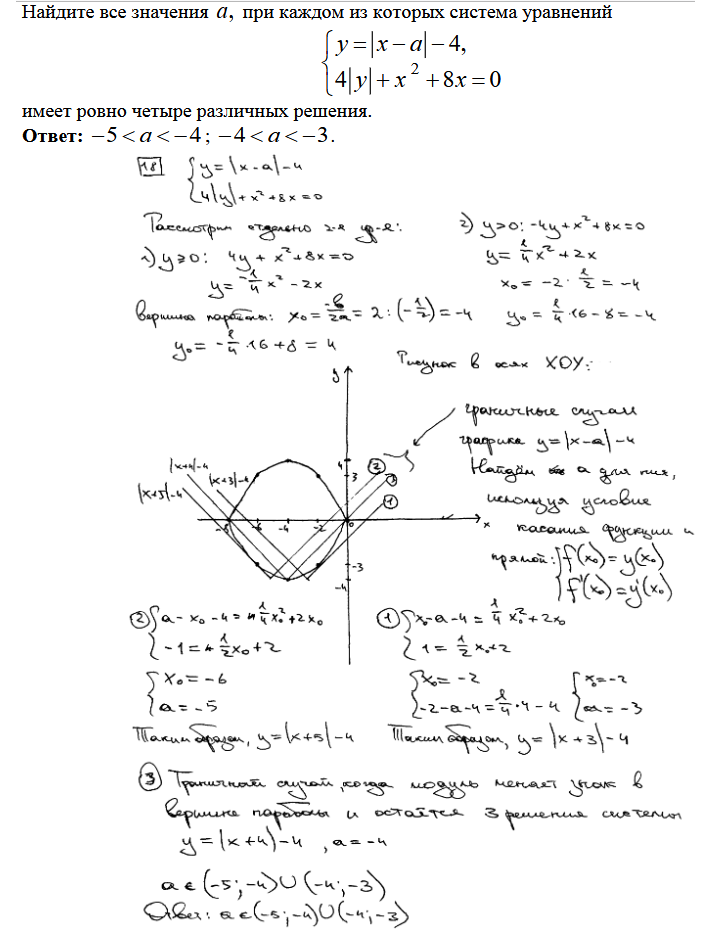 Найдите все значения a, при каждом из которых система уравнений
{ y = |x − a| − 4,
4|y| + x² + 8x = 0
имеет ровно четыре различных решения.
Ответ: −5 < a < −4; −4 < a < −3.
18 { y = |x-a|-4
4|y|+x²+8x=0
Рассмотрим отдельно 2-е ур-е:
1) y≥0: 4y + x²+8x=0
y = -1/4 x² - 2x
вершина параболы: x₀ = -b/2a = 2 : (-1/2) = -4
y₀ = -1/4 · 16 + 8 = 4
2) y>0: -4y+x²+8x=0
y = 1/4 x² + 2x
x₀ = -2 · 1/2 = -4
y₀ = 1/4 · 16 - 8 = -4
Рисунок в осях XOY:
y
граничные случаи
графика y=|x-a|-4
Найдём a для них,
используя условие
касания функции и
прямой: { f(x₀) = y(x₀)
f'(x₀) = y'(x₀)
|x+4|-4
|x+3|-4
|x+5|-4
2
3
1
4
3
-8 -6 -4 -2 0 x
-3
-4
2 { a - x₀ - 4 = 1/4 x₀² + 2x₀
-1 = 1/2 x₀ + 2
{ x₀ = -6
a = -5
Таким образом, y = |x+5| - 4
1 { x₀ - a - 4 = 1/4 x₀² + 2x₀
1 = 1/2 x₀ + 2
{ x₀ = -2
-2 - a - 4 = 1/4 · 4 - 4
{ x₀ = -2
a = -3
Таким образом, y = |x+3| - 4
3 Граничный случай, когда модуль меняет знак в
вершине параболы и остаётся 3 решения системы
y = |x+4| - 4, a = -4
a ∈ (-5; -4) ∪ (-4; -3)
Ответ: a ∈ (-5; -4) ∪ (-4; -3)